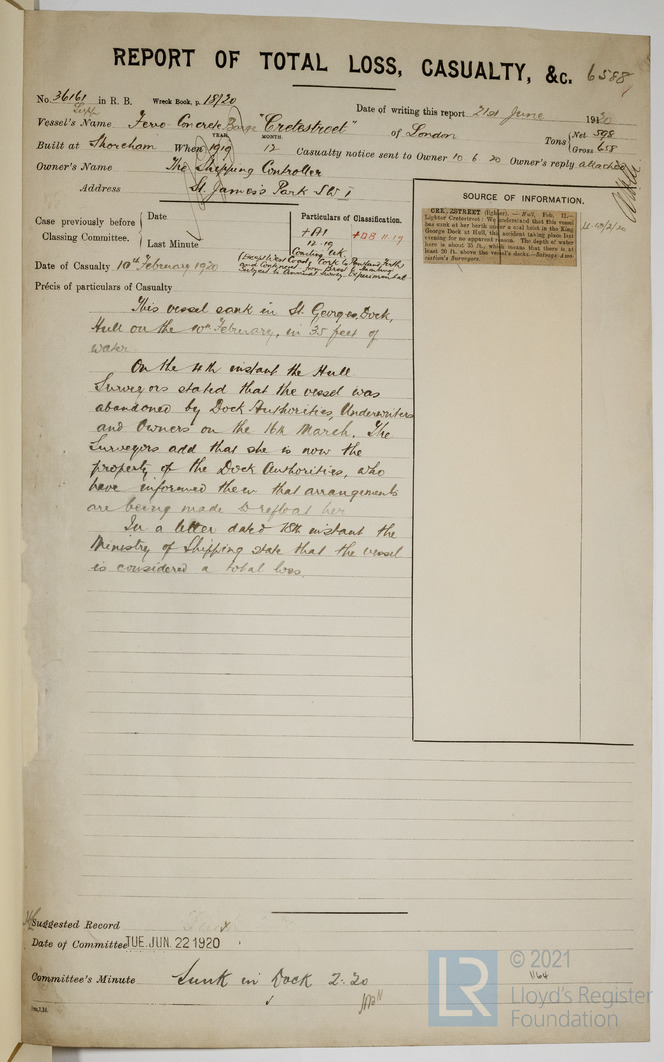 REPORT OF TOTAL LOSS, CASUALTY, &c. 6588
No. 36161 in R. B. Wreck Book, p. 18/20
Sept
Date of writing this report 21st June 1920
Vessel's Name Ferro-Concrete Barge "Cretestreet" of London
Tons { Net 598
Gross 658
YEAR. MONTH.
Built at Shoreham When 1919 12 Casualty notice sent to Owner 10 6 20 Owner's reply attached
Owner's Name The Shipping Controller
Address St. James's Park SW 1
Case previously before Classing Committee.
Date
Last Minute
Particulars of Classification.
+A1 +DB 11.19
12.19
Coasting
Date of Casualty 10th February 1920
Précis of particulars of Casualty
This vessel sank in St. Georges Dock,
Hull on the 10th February, in 35 feet of
water
On the 4th instant the Hull
Surveyors stated that the vessel was
abandoned by Dock Authorities, Underwriters
and Owners on the 16th March. The
Surveyors add that she is now the
property of the Dock Authorities, who
have informed them that arrangements
are being made to refloat her
In a letter dated 18th instant the
Ministry of Shipping state that the vessel
is considered a total loss.
SOURCE OF INFORMATION.
CRETESTREET (lighter).—Hull, Feb. 11.—
Lighter Cretestreet: We understand that this vessel
has sunk at her berth under a coal hoist in the King
George Dock at Hull, the accident taking place last
evening for no apparent reason. The depth of water
here is about 35 ft., which means that there is at
least 20 ft. above the vessel's decks.—Salvage Asso-
ciation's Surveyors.
Suggested Record
Date of Committee TUE. JUN. 22 1920
Committee's Minute Sunk in Dock 2.20
1164
© 2021
LR
Lloyd's Register
Foundation